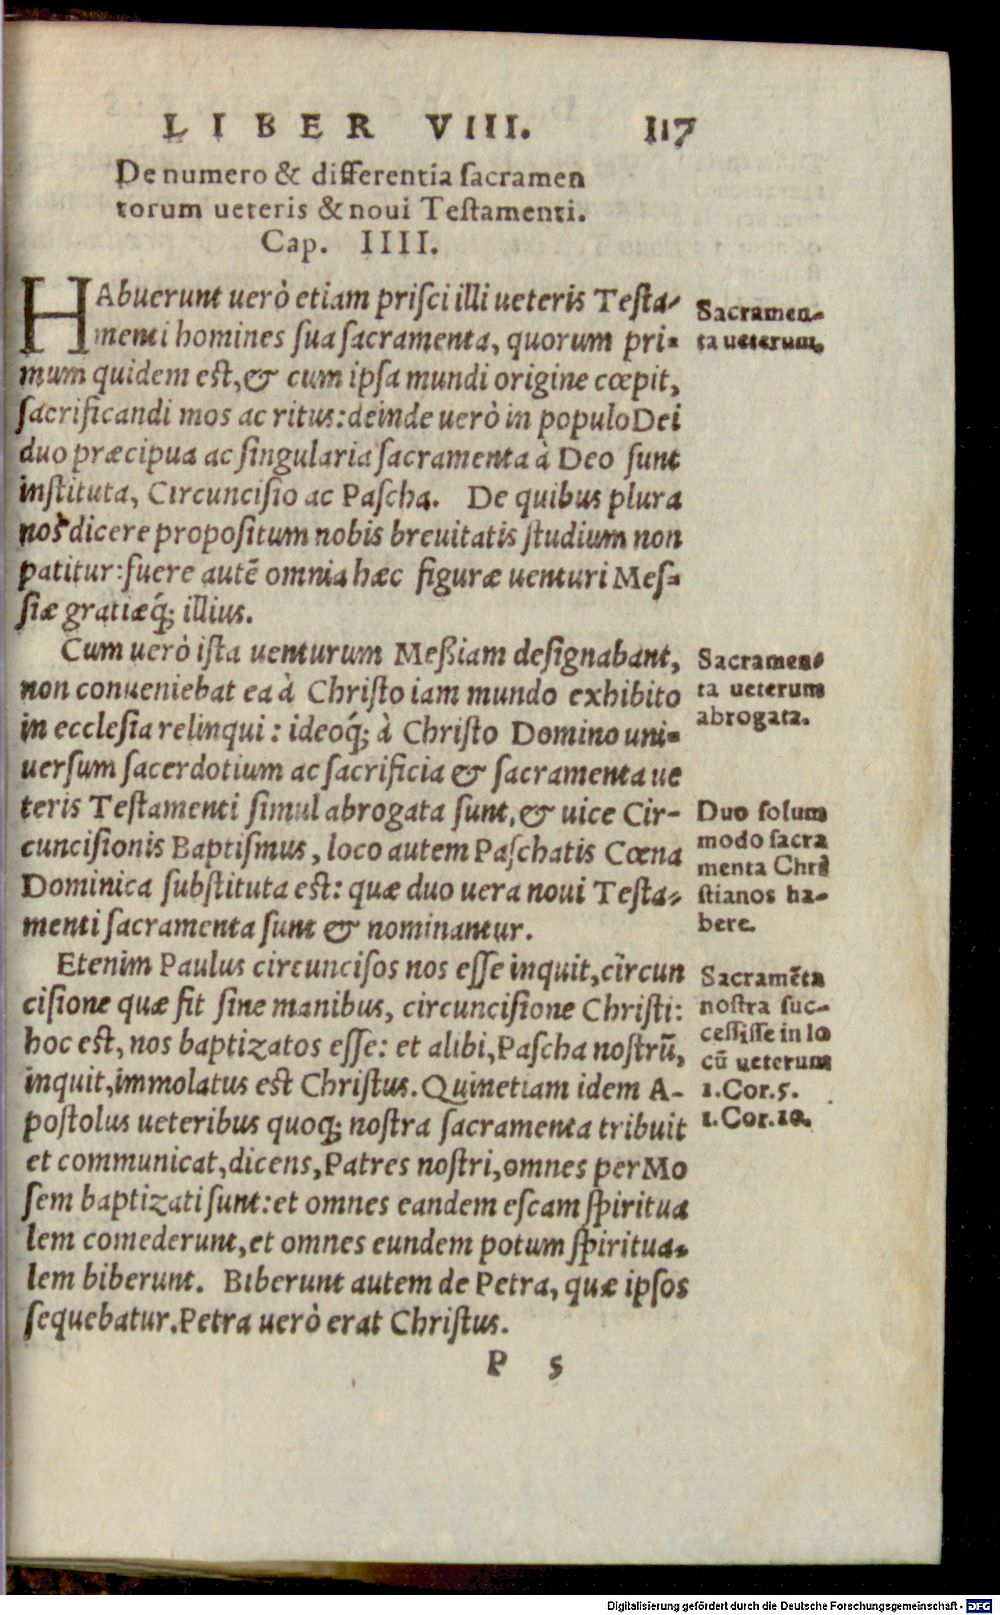 LIBER VIII. 117
De numero & differentia sacramen
torum ueteris & noui Testamenti.
Cap. IIII.
HAbuerunt uerò etiam prisci illi ueteris Testa-
menti homines sua sacramenta, quorum pri-
mum quidem est, & cum ipsa mundi origine cœpit,
sacrificandi mos ac ritus: deinde uerò in populo Dei
duo præcipua ac singularia sacramenta à Deo sunt
instituta, Circuncisio ac Pascha. De quibus plura
nos dicere propositum nobis breuitatis studium non
patitur: fuere autē omnia hæc figuræ uenturi Mes-
siæ gratiæq́; illius.
Sacramen-
ta ueterum.
Cum uerò ista uenturum Meßiam designabant,
non conueniebat ea à Christo iam mundo exhibito
in ecclesia relinqui: ideoq́; à Christo Domino uni-
uersum sacerdotium ac sacrificia & sacramenta ue
teris Testamenti simul abrogata sunt, & uice Cir-
cuncisionis Baptismus, loco autem Paschatis Cœna
Dominica substituta est: quæ duo uera noui Testa-
menti sacramenta sunt & nominantur.
Sacramen-
ta ueterum
abrogata.
Duo solum
modo sacra
menta Chri
stianos ha-
bere.
Etenim Paulus circuncisos nos esse inquit, circun
cisione quæ fit sine manibus, circuncisione Christi:
hoc est, nos baptizatos esse: et alibi, Pascha nostrū,
inquit, immolatus est Christus. Quinetiam idem A-
postolus ueteribus quoq; nostra sacramenta tribuit
et communicat, dicens, Patres nostri, omnes per Mo
sem baptizati sunt: et omnes eandem escam spiritua
lem comederunt, et omnes eundem potum spiritua-
lem biberunt. Biberunt autem de Petra, quæ ipsos
sequebatur. Petra uerò erat Christus.
Sacramēta
nostra suc-
cessisse in lo
cū ueterum
1.Cor.5.
1.Cor.10.
P 5
Digitalisierung gefördert durch die Deutsche Forschungsgemeinschaft - DFG